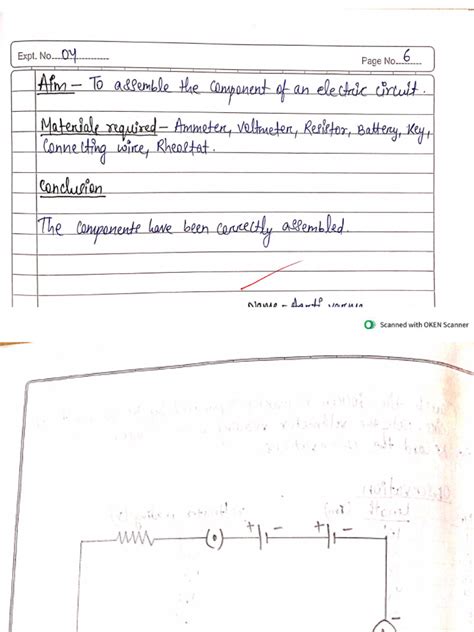 Expt. No. 04
Page No. 6
Aim - To assemble the component of an electric circuit.
Materials required - Ammeter, Voltmeter, Resistor, Battery, Key,
Connecting wire, Rheostat.
Conclusion
The components have been correctly assembled.
Name - Aarti
Scanned with OKEN Scanner
+ - + -
-